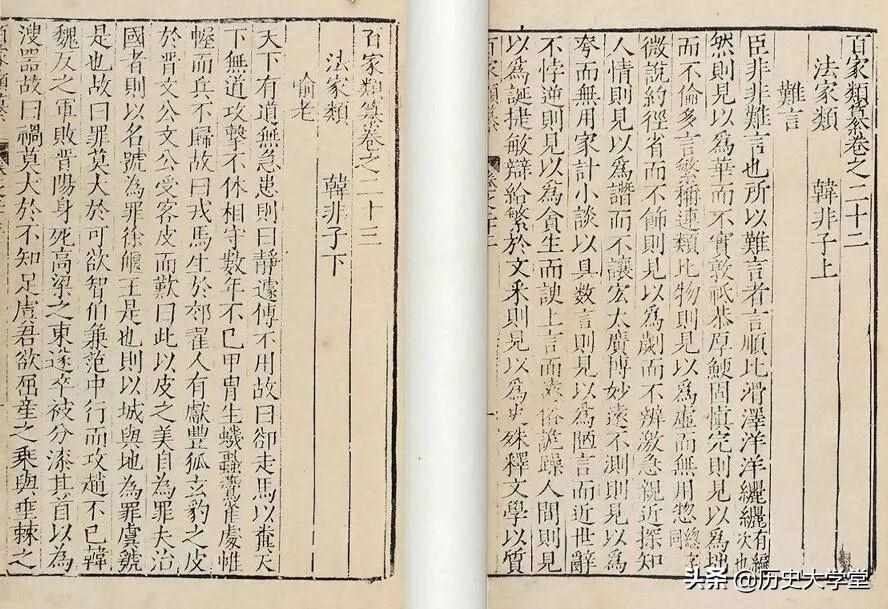 百家類纂卷之二十二
法家類 韓非子上
難言
臣非非難言也所以難言者言順比滑澤洋洋纚纚有編次也
然則見以為華而不實敦祗恭厚鯁固慎完則見以為拙
而不倫多言繁稱連類比物則見以為虛而無用惣總字同
微說約徑省而不飾則見以為劌而不辨激急親近探知
人情則見以為譖而不讓宏大廣博妙遠不測則見以為
夸而無用家計小談以具數言則見以為陋言而近世辭
不悖逆則見以為貪生而諛上言而遠俗詭躁人間則見
以為誕捷敏辯給繁於文采則見以為史殊釋文學以質
百家類纂
百家類纂卷之二十三
法家類 韓非子下
喻老
天下有道無急患則曰靜遽傳不用故曰卻走馬以糞天
下無道攻擊不休相守數年不已甲冑生蟣蝨鷰雀處帷
幄而兵不歸故曰戎馬生於郊翟人有獻豐狐玄豹之皮
於晋文公文公受客皮而歎曰此以皮之美自為罪夫治
國者則以名號為罪徐偃王是也則以城與地為罪虞虢
是也故曰罪莫大於可欲智伯兼范中行而攻趙不已韓
魏反之軍敗晋陽身死高梁之東遂卒被分漆其首以為
溲器故曰禍莫大於不知足虞君欲屈產之乘與垂棘之
头条 @历史大学堂